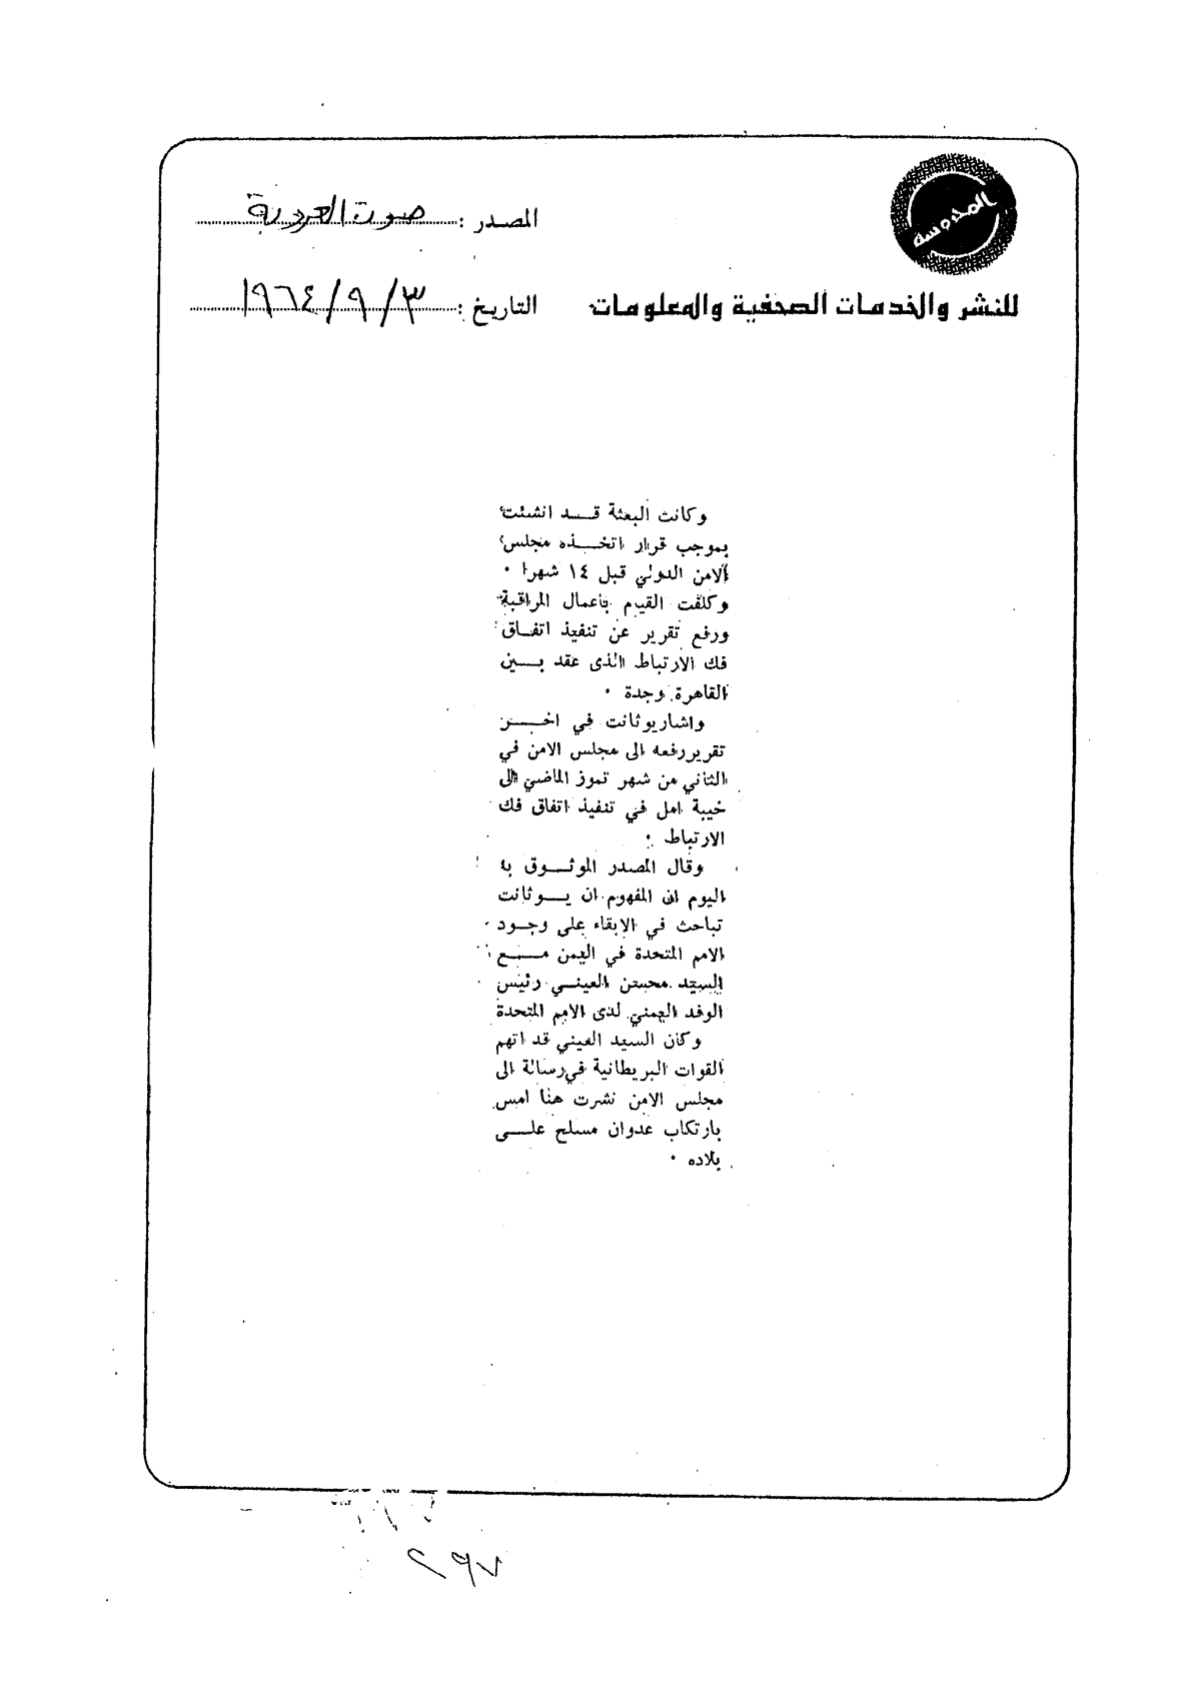 المحروسة
للنشر والخدمات الصحفية والمعلومات
المصدر : صوت العروبة
التاريخ : ٣/٩/١٩٦٤
وكانت البعثة قـــد انشئت
بموجب قرار اتخـــذه مجلس
الامن الدولي قبل ١٤ شهرا •
وكلفت القيام بأعمال المراقبة
ورفع تقرير عن تنفيذ اتفـاق
فك الارتباط الذى عقد بـــين
القاهرة وجدة •
واشاريوثانت في اخـــر
تقريررفعه الى مجلس الامن في
الثاني من شهر تموز الماضي الى
خيبة امل في تنفيذ اتفاق فك
الارتباط •
وقال المصدر الموثـــوق به
اليوم ان المفهوم ان يـــوثانت
تباحث في الابقاء على وجـود
الامم المتحدة في اليمن مـــع
السيد محسن العينـــي رئيس
الوفد اليمني لدى الامم المتحدة
وكان السيد العيني قد اتهم
القوات البريطانية في رسالة الى
مجلس الامن نشرت هنا امس
بارتكاب عدوان مسلح علـــى
بلاده •